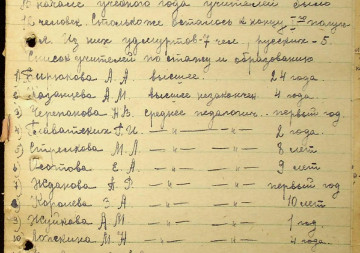 В начале учебного года учителей было
12 человек. Столько же осталось к концу I-го полуго-
дия. Из них удмуртов-7 чел. русских - 5.
Список учителей по стажу и образованию
1) Бирюкова А.А высшее 24 года.
2) Казанцева А.М высшее незакончен. 4 года.
3) Черепанова Н.В. среднее педагогич. первый год.
4) Г.И. — „ — „ — 2 года.
5) Стрелкова М.Л — „ — „ — 8 лет
6) Е.А — „ — „ — 9 лет
7) Жданова А.Ф. — „ — „ — первый год
8) Королева З.А — „ — „ — 10 лет
9) Жуйкова А.М. — „ — „ — 1 год.
10) Ложкина М.Н — „ — „ — 4 года.